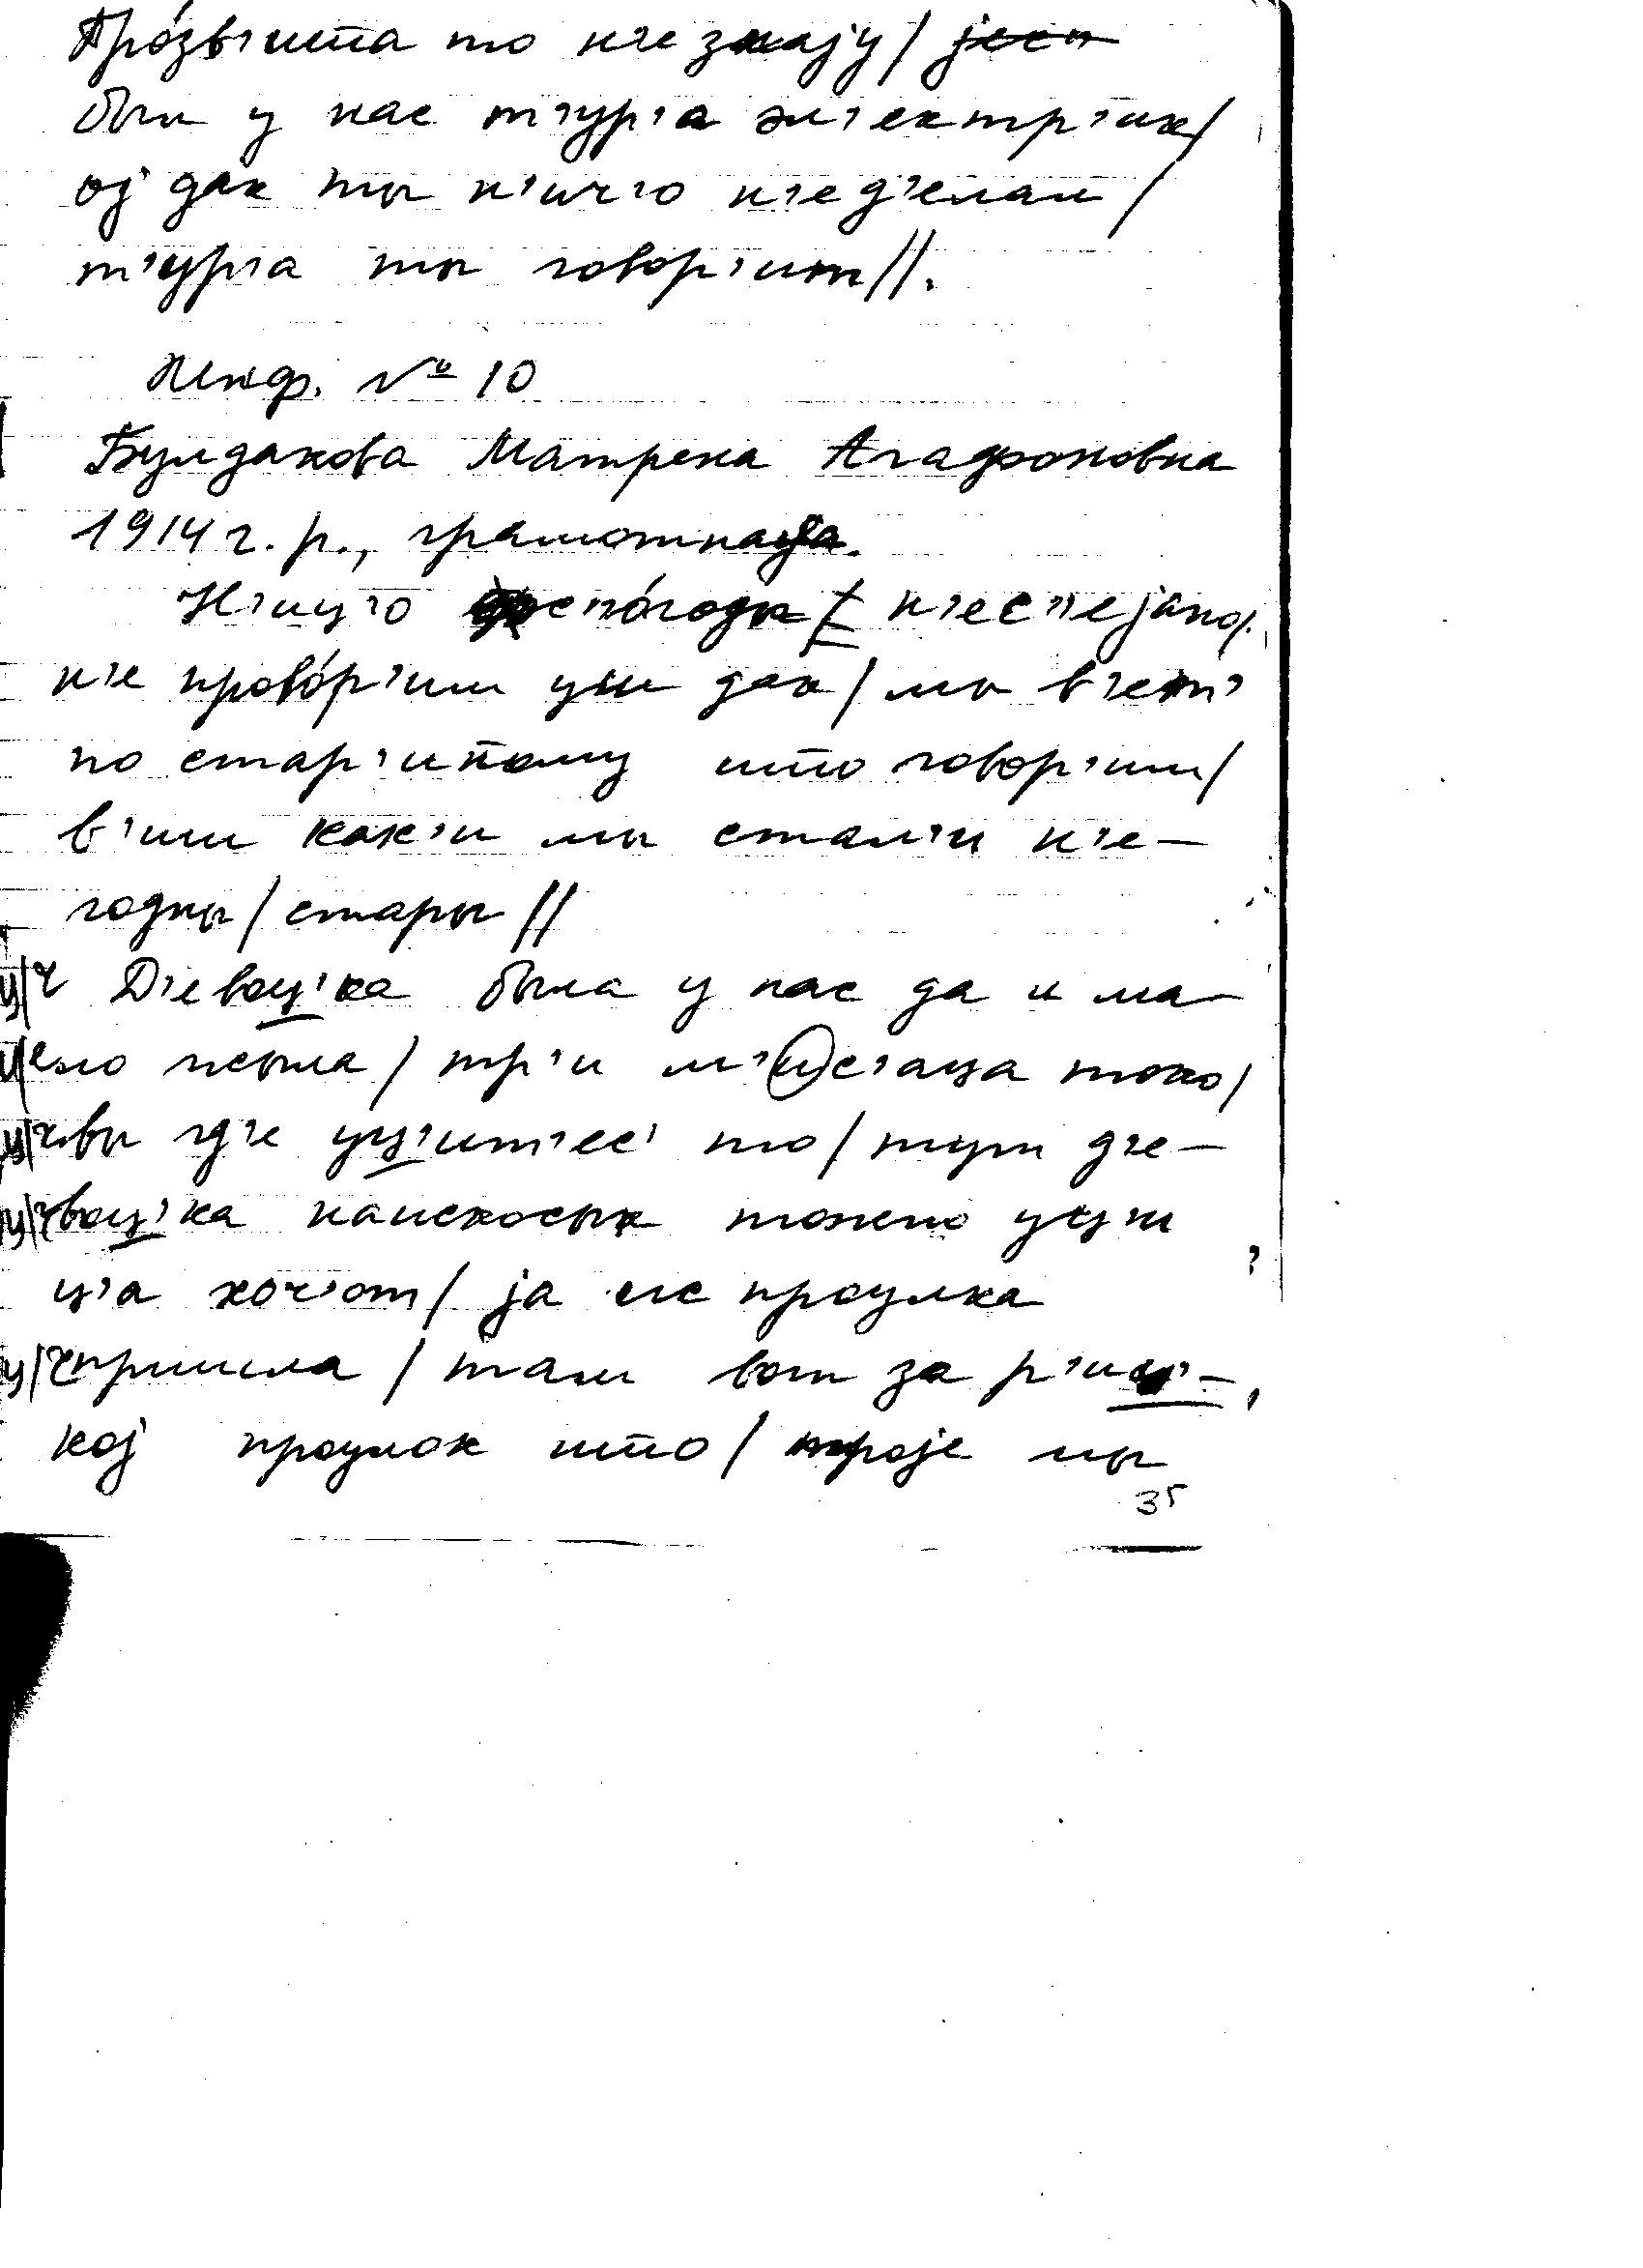 Про́зв'ишша то н'е знају/ јесл
был у нас т'ур'а эл'ектр'ик/
ој дак ты н'ич'о н'е д'елаш/
т'ур'а ты говор'ит//.
Инф. № 10
Булдакова Матрена Агафоновна
1914 г. р., грамотная.
Н'иц'о спо́годы/ н'е с'п'ејано/.
н'е прово́р'им уш дак/ мы в'ет'
по стар'инному што говор'им/
в'иш как'и мы стал'и н'е-
годны/ стары//
ц/ч Д'евоц'ка была у нас да и ма-
ло жыла/ тр'и м'(и)с'аца токо/
ц/ч вы гд'е уц'ит'ес' то/ тут д'е-
ц/ч воц'ка наискосык тожо уцы
ц'а хоч'от/ ја ис проулка
ц/ч пришла/ там вот за р'иц'-
кој проулок што/ троје мы
35